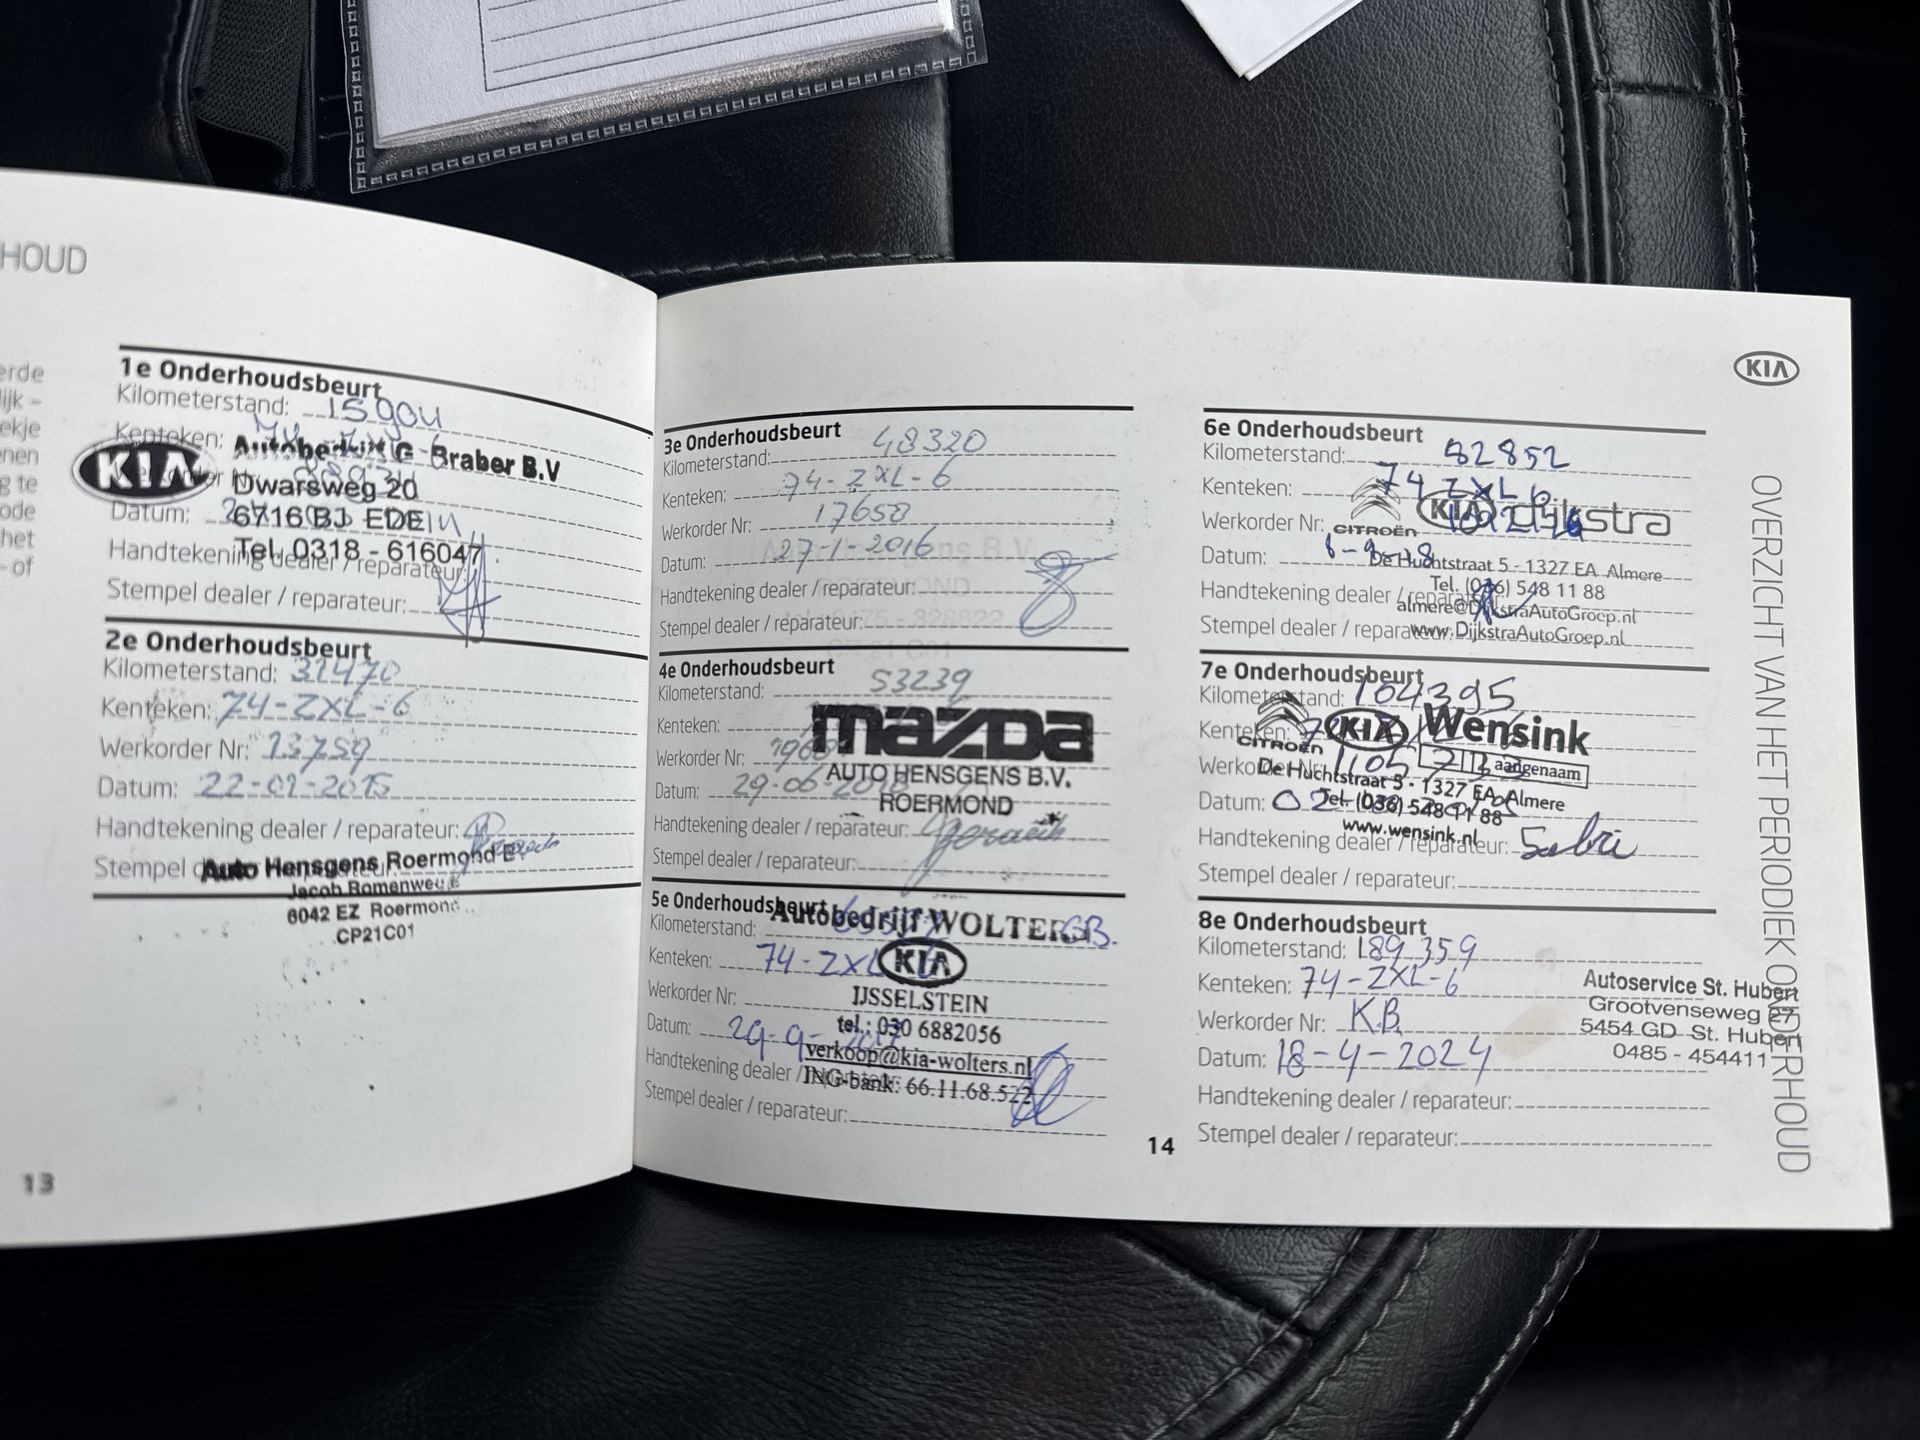 HOUD
erde
ijk -
ekje
nen
g te
ode
het
- of
1e Onderhoudsbeurt
Kilometerstand:
Kenteken:
KIA
Autobedrijf G Braber B.V
Dwarsweg 20
Datum:
6716 BJ EDE
Tel. 0318 - 616047
Handtekening dealer / reparateur:
Stempel dealer / reparateur:
2e Onderhoudsbeurt
Kilometerstand: 31470
Kenteken: 74-ZXL-6
Werkorder Nr: 13759
Datum: 22-01-2015
Handtekening dealer / reparateur:
Stempel
Auto Hensgens Roermond
6042 EZ Roermond
CP21C01
13
3e Onderhoudsbeurt
Kilometerstand: 48320
Kenteken: 74-ZXL-6
Werkorder Nr: 17658
Datum: 27-1-2016
Handtekening dealer / reparateur:
Stempel dealer / reparateur:
4e Onderhoudsbeurt
Kilometerstand: 53239
Kenteken:
mazda
Werkorder Nr:
AUTO HENSGENS B.V.
Datum: 29-06-2016
ROERMOND
Handtekening dealer / reparateur:
Stempel dealer / reparateur:
5e Onderhoudsbeurt
Autobedrijf WOLTERS
Kilometerstand: GB.
Kenteken: 74-ZXL
KIA
Werkorder Nr:
IJSSELSTEIN
Datum: 29-9-
tel.: 030 6882056
verkoop@kia-wolters.nl
Handtekening dealer /
ING-bank: 66.11.68.522
Stempel dealer / reparateur:
14
KIA
6e Onderhoudsbeurt
Kilometerstand: 82852
Kenteken: 74 ZXL 6
Werkorder Nr:
CITROËN KIA dijkstra
Datum: 6-9-18
De Huchtstraat 5 - 1327 EA Almere
Tel. (036) 548 11 88
Handtekening dealer / reparateur:
almere@DijkstraAutoGroep.nl
Stempel dealer / reparateur:
www.DijkstraAutoGroep.nl
7e Onderhoudsbeurt
Kilometerstand: 104395
Kenteken:
CITROËN KIA Wensink
aangenaam
Werkorder Nr:
De Huchtstraat 5 - 1327 EA Almere
Datum:
Tel. (036) 548 11 88
www.wensink.nl
Handtekening dealer / reparateur: Sabri
Stempel dealer / reparateur:
8e Onderhoudsbeurt
Kilometerstand: 189359
Kenteken: 74-ZXL-6
Werkorder Nr: K.B.
Datum: 18-4-2024
Autoservice St. Hubert
Grootvenseweg 27
5454 GD St. Hubert
0485 - 454411
Handtekening dealer / reparateur:
Stempel dealer / reparateur:
OVERZICHT VAN HET PERIODIEK ONDERHOUD